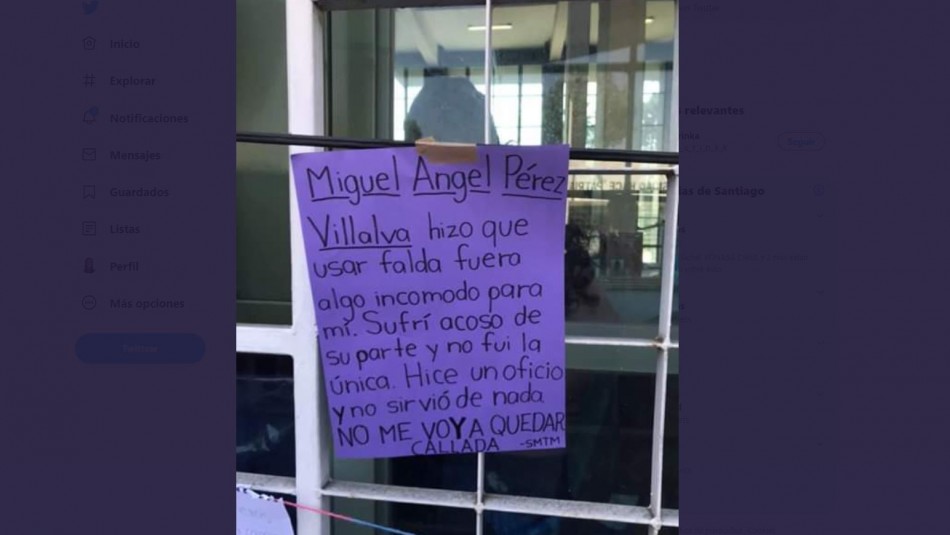 Inicio
Explorar
Notificaciones
Mensajes
Guardados
Listas
Perfil
Más opciones
relevantes
as de Santiago
Miguel Angel Pérez
Villalva hizo que
usar falda fuera
algo incomodo para
mi. Sufrí acoso de
su parte y no fui la
única. Hice un oficio
y no sirvió de nada
NO ME VOY A QUEDAR
CALLADA -SMTM